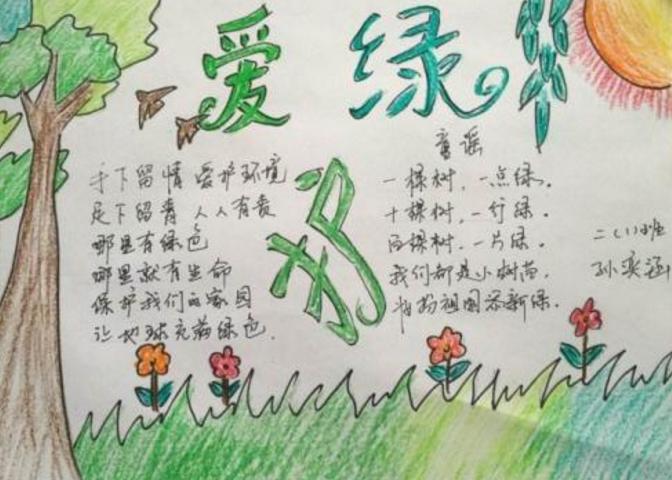 爱 绿
护
手下留情 爱护环境
足下留青 人人有责
哪里有绿色
哪里就有生命
保护我们的家园
让地球充满绿色.
童谣
一棵树,一点绿。
十棵树,一行绿。
百棵树,一片绿。
我们都是小树苗,
祖国添新绿.
二(1)班
孙奕涵